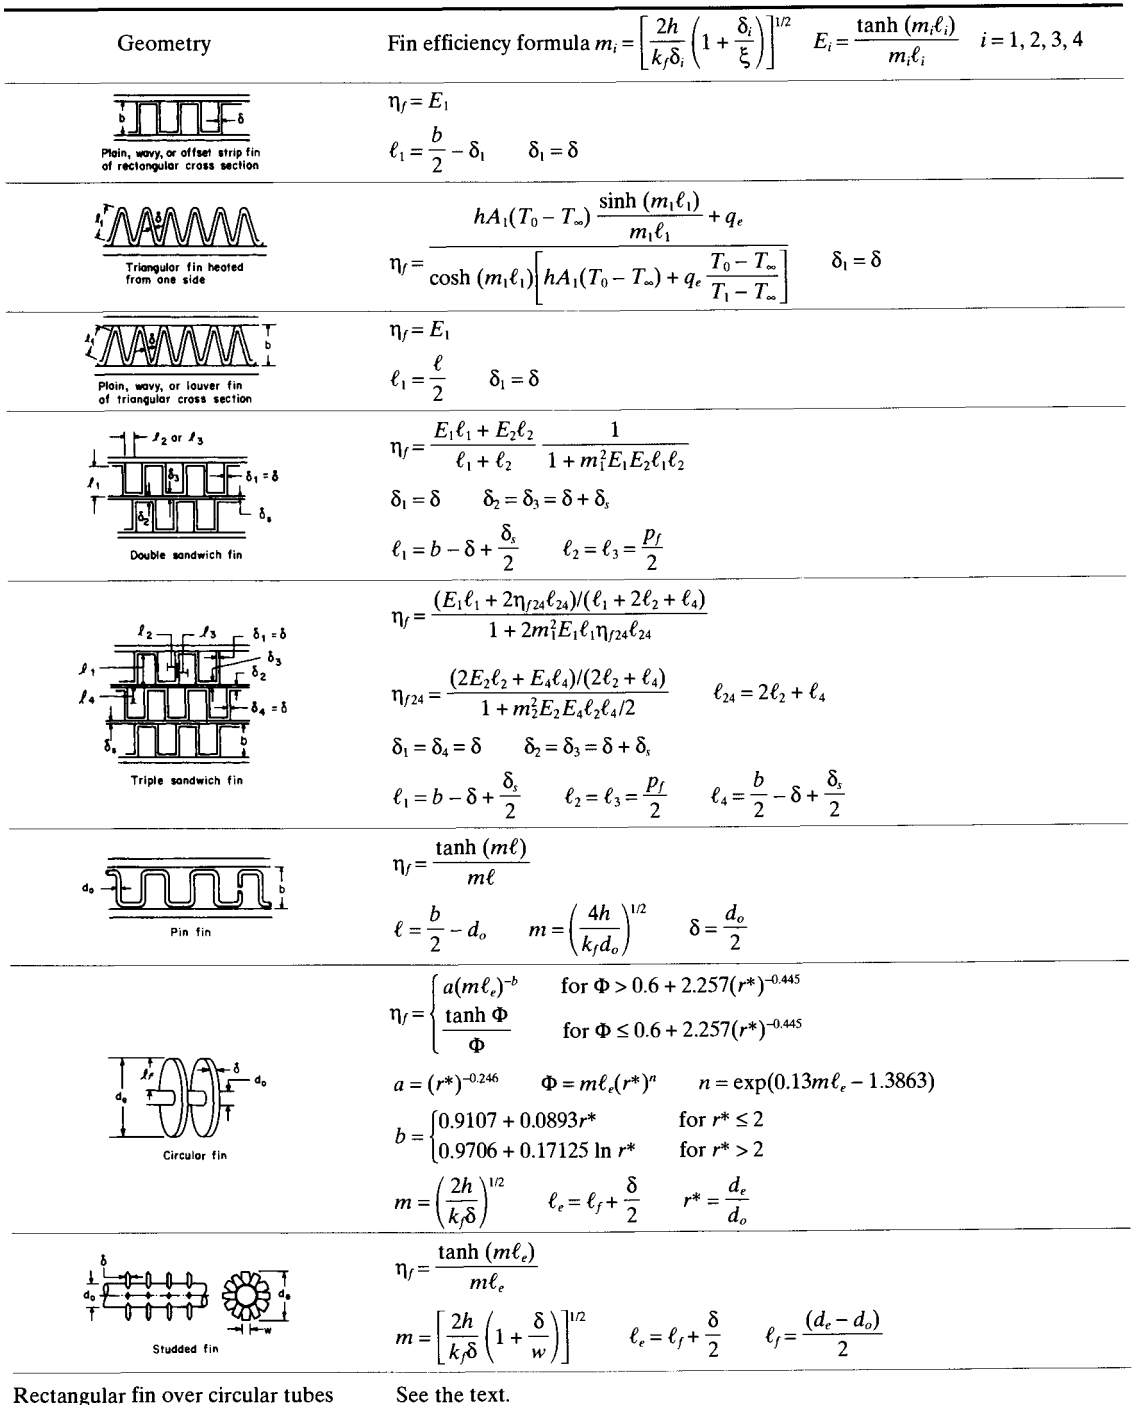 Geometry
Fin efficiency formula mᵢ = [2h/(k_f δᵢ) (1 + δᵢ/ξ)]^{1/2}  Eᵢ = tanh (mᵢℓᵢ)/(mᵢℓᵢ)  i = 1, 2, 3, 4
b
δ
Plain, wavy, or offset strip fin
of rectangular cross section
η_f = E₁
ℓ₁ = b/2 − δ₁  δ₁ = δ
ℓ₁
δ
Triangular fin heated
from one side
η_f = (hA₁(T₀ − T_∞) sinh (m₁ℓ₁)/(m₁ℓ₁) + q_e) / (cosh (m₁ℓ₁)[hA₁(T₀ − T_∞) + q_e (T₀ − T_∞)/(T₁ − T_∞)])  δ₁ = δ
ℓ₁
δ
b
Plain, wavy, or louver fin
of triangular cross section
η_f = E₁
ℓ₁ = ℓ/2  δ₁ = δ
ℓ₂ or ℓ₃
ℓ₁
δ₃
δ₁ = δ
δ₂
δₛ
Double sandwich fin
η_f = (E₁ℓ₁ + E₂ℓ₂)/(ℓ₁ + ℓ₂) 1/(1 + m₁²E₁E₂ℓ₁ℓ₂)
δ₁ = δ  δ₂ = δ₃ = δ + δₛ
ℓ₁ = b − δ + δₛ/2  ℓ₂ = ℓ₃ = p_f/2
ℓ₂
ℓ₃
δ₁ = δ
ℓ₁
δ₃
δ₂
ℓ₄
δ₄ = δ
δₛ
b
Triple sandwich fin
η_f = ((E₁ℓ₁ + 2η_{f24}ℓ₂₄)/(ℓ₁ + 2ℓ₂ + ℓ₄))/(1 + 2m₁²E₁ℓ₁η_{f24}ℓ₂₄)
η_{f24} = ((2E₂ℓ₂ + E₄ℓ₄)/(2ℓ₂ + ℓ₄))/(1 + m₂²E₂E₄ℓ₂ℓ₄/2)  ℓ₂₄ = 2ℓ₂ + ℓ₄
δ₁ = δ₄ = δ  δ₂ = δ₃ = δ + δₛ
ℓ₁ = b − δ + δₛ/2  ℓ₂ = ℓ₃ = p_f/2  ℓ₄ = b/2 − δ + δₛ/2
dₒ
b
Pin fin
η_f = tanh (mℓ)/(mℓ)
ℓ = b/2 − dₒ  m = (4h/(k_f dₒ))^{1/2}  δ = dₒ/2
ℓ_f
δ
dₒ
dₑ
Circular fin
η_f = { a(mℓₑ)^{−b}  for Φ > 0.6 + 2.257(r*)^{−0.445}
tanh Φ/Φ  for Φ ≤ 0.6 + 2.257(r*)^{−0.445}
a = (r*)^{−0.246}  Φ = mℓₑ(r*)ⁿ  n = exp(0.13mℓₑ − 1.3863)
b = { 0.9107 + 0.0893r*  for r* ≤ 2
0.9706 + 0.17125 ln r*  for r* > 2
m = (2h/(k_f δ))^{1/2}  ℓₑ = ℓ_f + δ/2  r* = dₑ/dₒ
δ
dₒ
dₑ
w
Studded fin
η_f = tanh (mℓₑ)/(mℓₑ)
m = [2h/(k_f δ) (1 + δ/w)]^{1/2}  ℓₑ = ℓ_f + δ/2  ℓ_f = (dₑ − dₒ)/2
Rectangular fin over circular tubes
See the text.